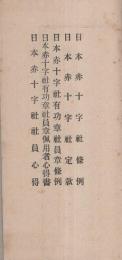 日本赤十字社條例
日本赤十字社定款
日本赤十字社有功章社員章條例
日本赤十字社有功章社員章佩用者心得書
日本赤十字社社員心得